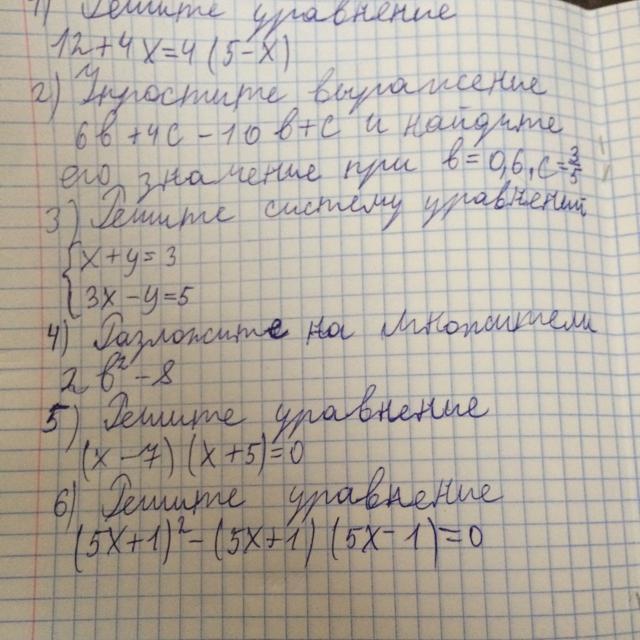 1) Решите уравнение
12+4x=4(5-x)
2) Упростите выражение
6b+4c-10b+c и найдите
его значение при b=0,6, c=3/5
3) Решите систему уравнений
{x+y=3
{3x-y=5
4) Разложите на множители
2b²-8
5) Решите уравнение
(x-7)(x+5)=0
6) Решите уравнение
(5x+1)²-(5x+1)(5x-1)=0